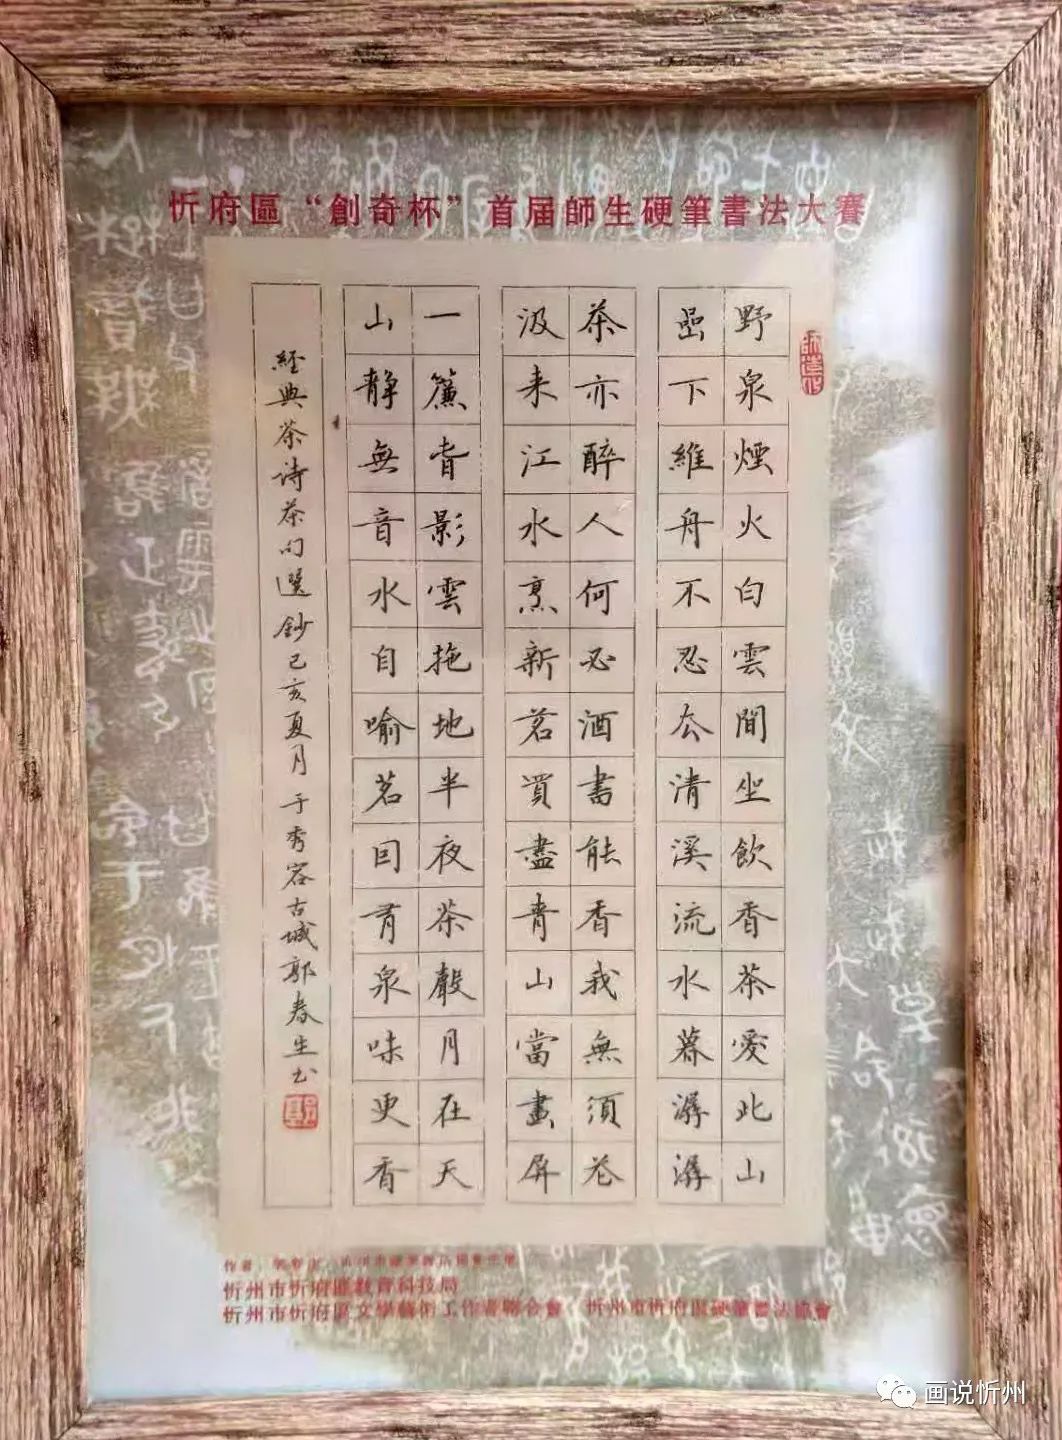 忻府區“創奇杯”首届師生硬筆書法大賽
野泉煙火白雲間坐飲香茶愛北山
嵒下維舟不忍厺清溪流水暮潺潺
茶亦醉人何必酒書能香我無須花
汲来江水烹新茗買盡青山當畫屏
一簾旾影雲拖地半夜茶聲月在天
山静無音水自喻茗因有泉味更香
經典茶诗茶句選鈔己亥夏月于秀容古城郭春生书
忻州市忻府區教育科技局
忻州市忻府區文學藝術工作者聯合會 忻州市忻府區硬筆書法協會
画说忻州